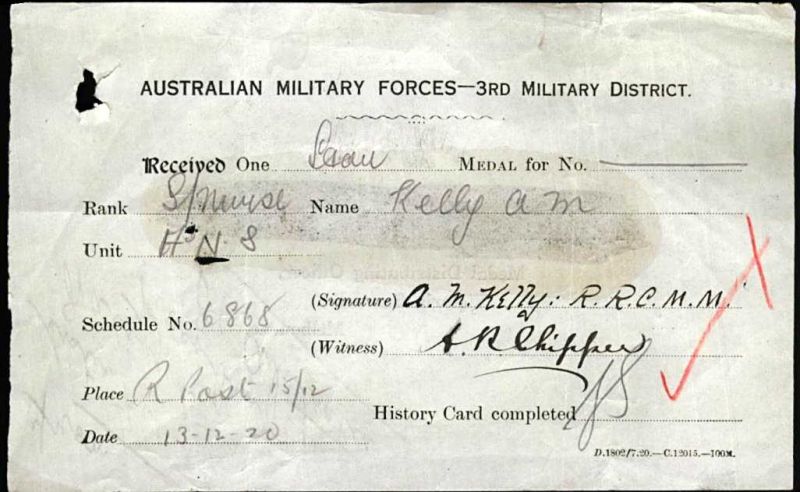 AUSTRALIAN MILITARY FORCES—3RD MILITARY DISTRICT.
Received One Medal for No.
Rank S/Nurse Name Kelly A M
Unit H S N. S
(Signature) A. M. Kelly: R. R. C. M. M.
Schedule No. 6868
(Witness) A. R. Chipper
Place R Post 15/12
History Card completed
Date 13-12-20
D.1802/7.20.—C.12015.—100M.